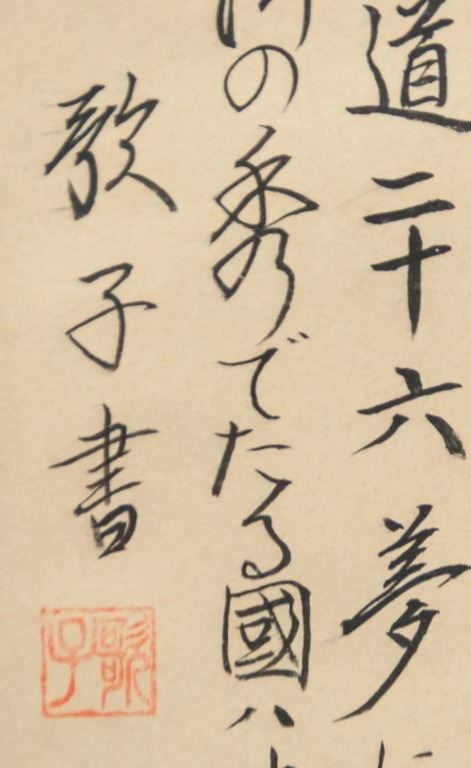 道二十六夢
の秀でたる國ハ
歌子書
歌子